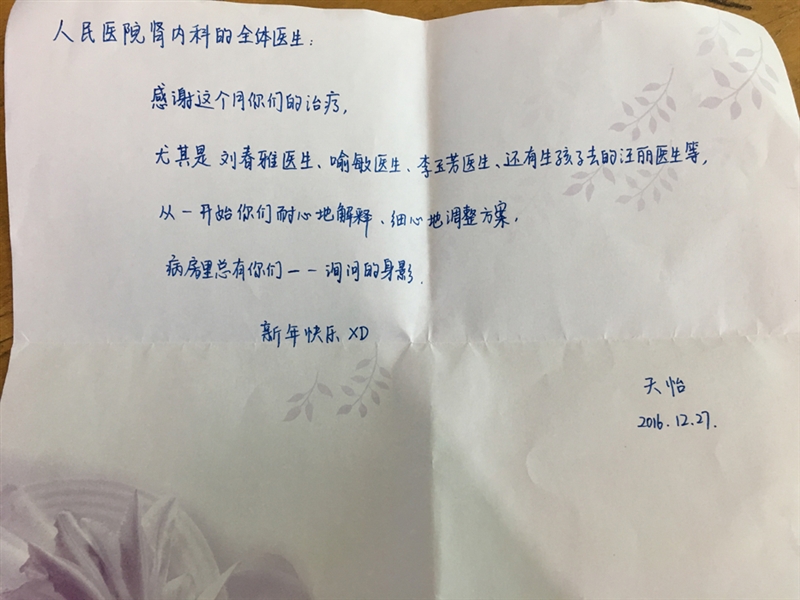 人民医院肾内科的全体医生：
感谢这个月你们的治疗，
尤其是刘春雅医生、喻敏医生、李玉芳医生、还有生孩子去的汪丽医生等，
从一开始你们耐心地解释、细心地调整方案，
病房里总有你们一一询问的身影．
新年快乐 XD
天怡
2016.12.27.